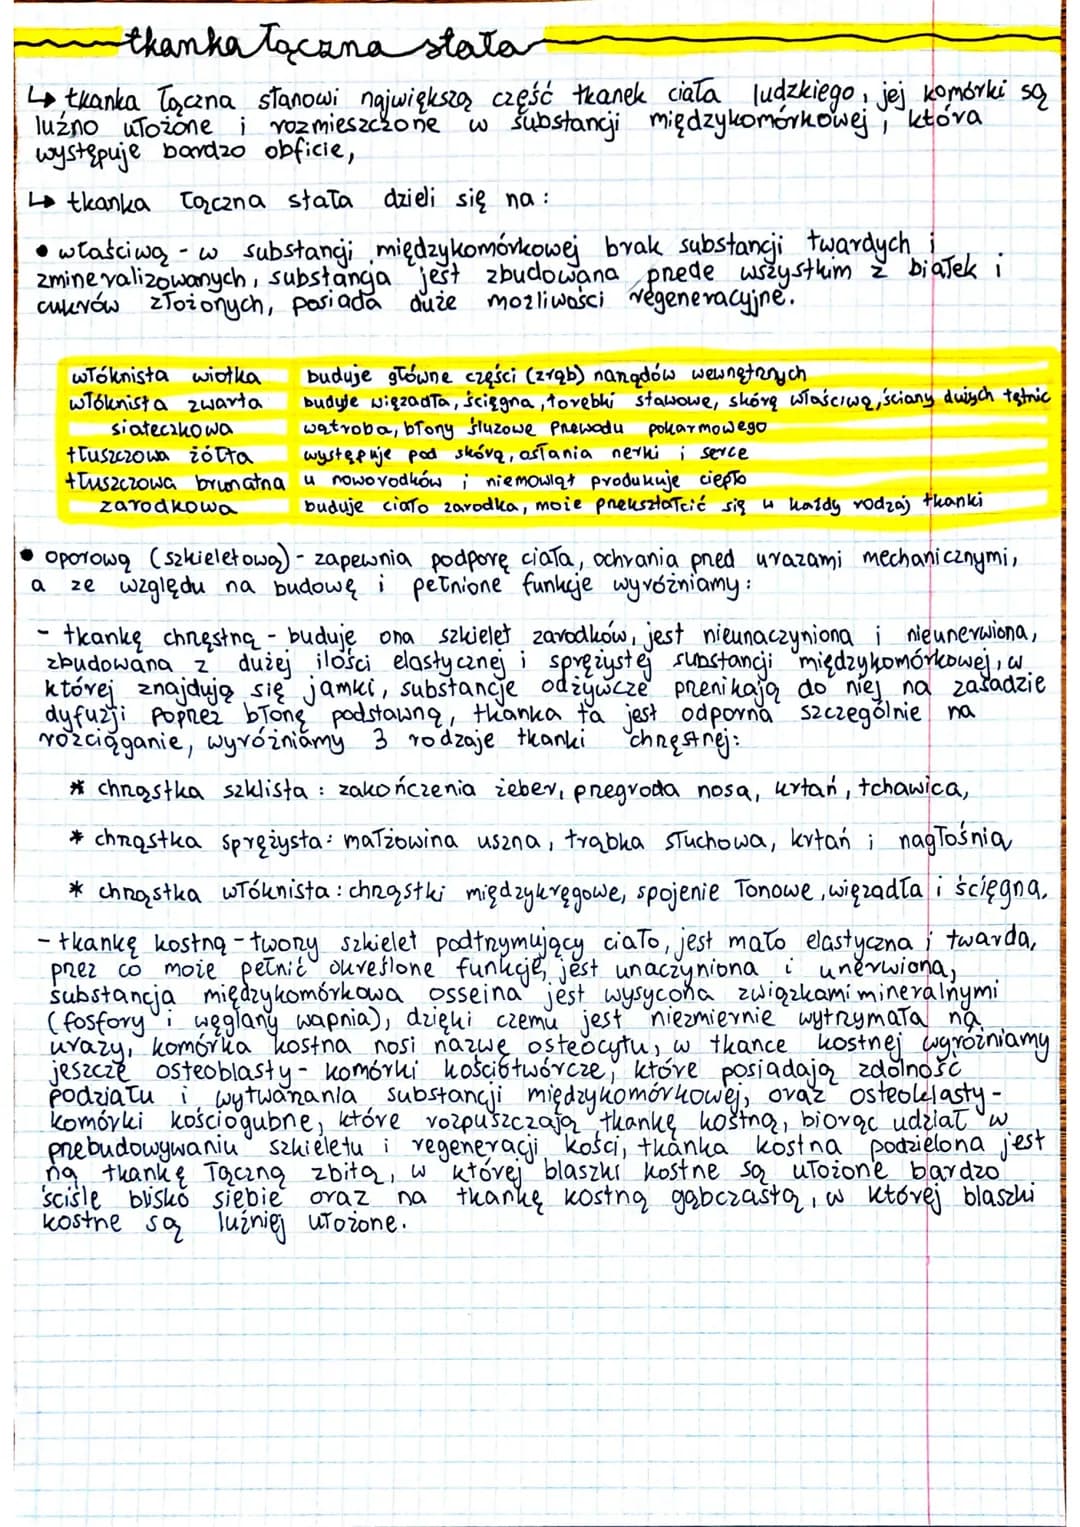 tkanka łączna stała
↳ tkanka łączna stanowi największą część tkanek ciała ludzkiego, jej komórki są
luźno ułożone i rozmieszczone w substancji międzykomórkowej, która
występuje bardzo obficie,
↳ tkanka łączna stała dzieli się na:
• właściwą - w substancji międzykomórkowej brak substancji twardych i
zmineralizowanych, substancja jest zbudowana przede wszystkim z białek i
cukrów złożonych, posiada duże możliwości regeneracyjne.
włóknista wiotka buduje główne części (zrąb) narządów wewnętrznych
włóknista zwarta buduje więzadła, ścięgna, torebki stawowe, skórę właściwą, ściany dużych tętnic
siateczkowa wątroba, błony śluzowe przewodu pokarmowego
tłuszczowa żółta występuje pod skórą, osłania nerki i serce
tłuszczowa brunatna u noworodków i niemowląt produkuje ciepło
zarodkowa buduje ciało zarodka, może przekształcić się w każdy rodzaj tkanki
• oporową (szkieletową) - zapewnia podporę ciała, ochrania przed urazami mechanicznymi,
a ze względu na budowę i pełnione funkcje wyróżniamy:
- tkankę chrzęstną - buduje ona szkielet zarodków, jest nieunaczyniona i nieunerwiona,
zbudowana z dużej ilości elastycznej i sprężystej substancji międzykomórkowej, w
której znajdują się jamki, substancje odżywcze przenikają do niej na zasadzie
dyfuzji poprzez błonę podstawną, tkanka ta jest odporna szczególnie na
rozciąganie, wyróżniamy 3 rodzaje tkanki chrzęstnej:
* chrząstka szklista: zakończenia żeber, przegroda nosa, krtań, tchawica,
* chrząstka sprężysta: małżowina uszna, trąbka słuchowa, krtań i nagłośnia
* chrząstka włóknista: chrząstki międzykręgowe, spojenie łonowe, więzadła i ścięgna.
- tkankę kostną - tworzy szkielet podtrzymujący ciało, jest mało elastyczna i twarda,
przez co może pełnić określone funkcje, jest unaczyniona i unerwiona,
substancja międzykomórkowa osseina jest wysycona związkami mineralnymi
(fosfory i węglany wapnia), dzięki czemu jest niezmiernie wytrzymała na
urazy, komórka kostna nosi nazwę osteocytu, w tkance kostnej wyróżniamy
jeszcze osteoblasty - komórki kościotwórcze, które posiadają zdolność
podziału i wytwarzania substancji międzykomórkowej, oraz osteoklasty -
komórki kościogubne, które rozpuszczają tkankę kostną, biorąc udział w
przebudowywaniu szkieletu i regeneracji kości, tkanka kostna podzielona jest
na tkankę łączną zbitą, w której blaszki kostne są ułożone bardzo
ściśle blisko siebie oraz na tkankę kostną gąbczastą, w której blaszki
kostne są luźniej ułożone.